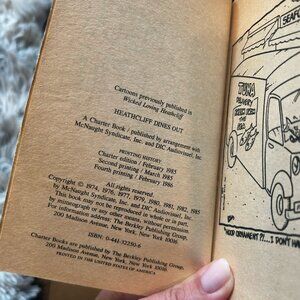 Cartoons previously published in
Wicked Loving Heathcliff
HEATHCLIFF DINES OUT
A Charter Book / published by arrangement with
McNaught Syndicate, Inc. and DIC Audiovisuel, Inc.
PRINTING HISTORY
Charter edition / February 1985
Second printing / March 1985
Fourth printing / February 1986
All rights reserved.
Copyright © 1974, 1976, 1977, 1979, 1980, 1981, 1982, 1985
by McNaught Syndicate, Inc. and DIC Audiovisuel, Inc.
This book may not be reproduced in whole or in part,
by mimeograph or any other means, without permission.
For information address: The Berkley Publishing Group,
200 Madison Avenue, New York, New York 10016.
ISBN: 0-441-32250-6
Charter Books are published by The Berkley Publishing Group,
200 Madison Avenue, New York, New York 10016.
PRINTED IN THE UNITED STATES OF AMERICA
SEAFO
TUNA
DELIVERY
"HOOD ORNAMENT??... I DON'T HA